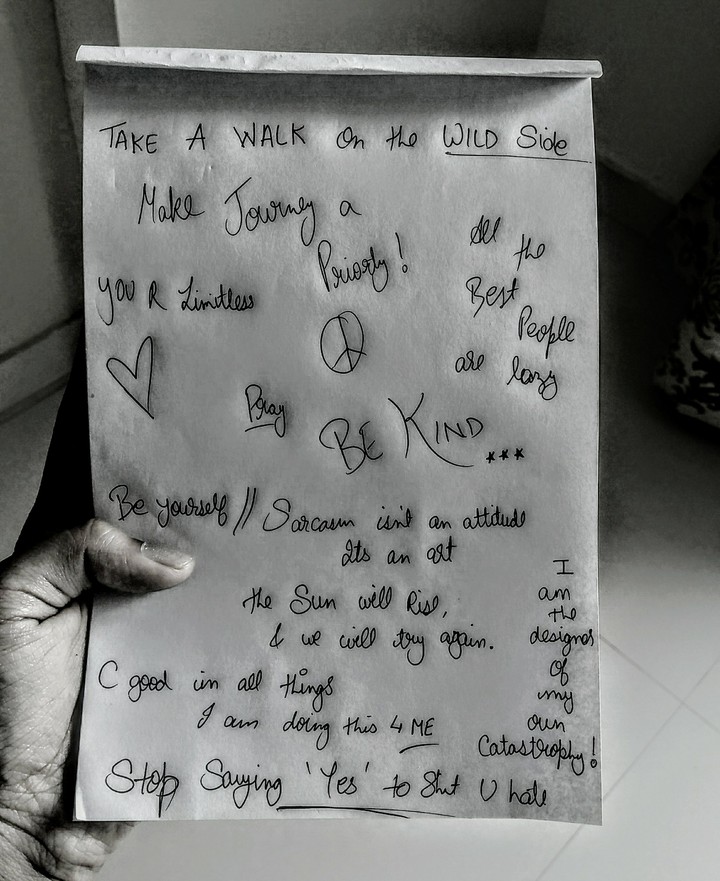 TAKE A WALK on the WILD Side
Make Journey a
Priority!
All
the
Best
People
are lazy
YOU R Limitless
Pray
BE KIND...
Be yourself // Sarcasm isn't an attitude
Its an art
the Sun will Rise,
& we will try again.
I
am
the
designer
of
my
own
Catastrophy!
C good in all things
I am doing this 4 ME
Stop Saying 'Yes' to Shit U hate